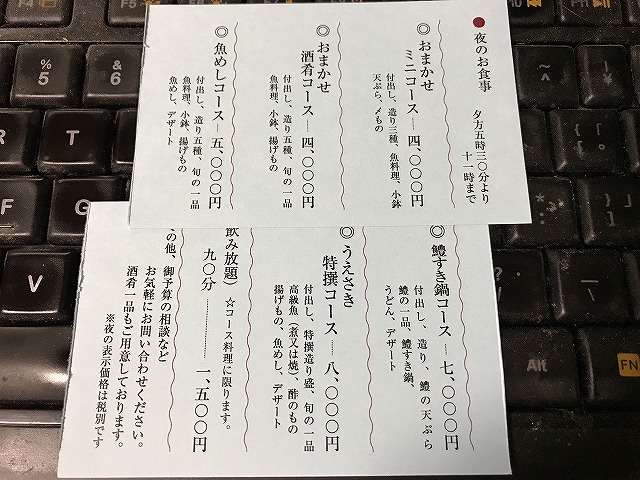 ●夜のお食事
夕方五時三〇分より
十一時まで
◎おまかせ
ミニコース 四、〇〇〇円
付出し、造り三種、魚料理、小鉢
天ぷら、〆もの
◎おまかせ
酒肴コース 四、〇〇〇円
付出し、造り五種、旬の一品
魚料理、小鉢、揚げもの
◎魚めしコース 五、〇〇〇円
付出し、造り五種、旬の一品
魚料理、小鉢、揚げもの
魚めし、デザート
◎鱧すき鍋コース 七、〇〇〇円
付出し、造り、鱧の天ぷら
鱧の一品、鱧すき鍋、
うどん、デザート
◎うえさき
特撰コース 八、〇〇〇円
付出し、特撰造り盛、旬の一品
高級魚(煮又は焼)、酢のもの
揚げもの、魚めし、デザート
飲み放題)☆コース料理に限ります。
九〇分 一、五〇〇円
の他、御予算の相談など
お気軽にお問い合わせください。
酒肴一品もご用意しております。
※夜の表示価格は税別です
%
5
&
6
R
T
F
G
V
Alt
FN